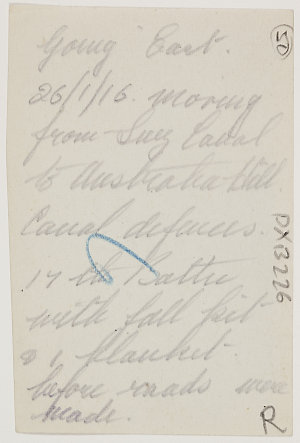 Going East.
26/1/16. moving
from Suez Canal
to Australia Hill
Canal defences.
17 th Battn
with full kit
& 1 blanket
before roads were
made.
15
PX13226
R